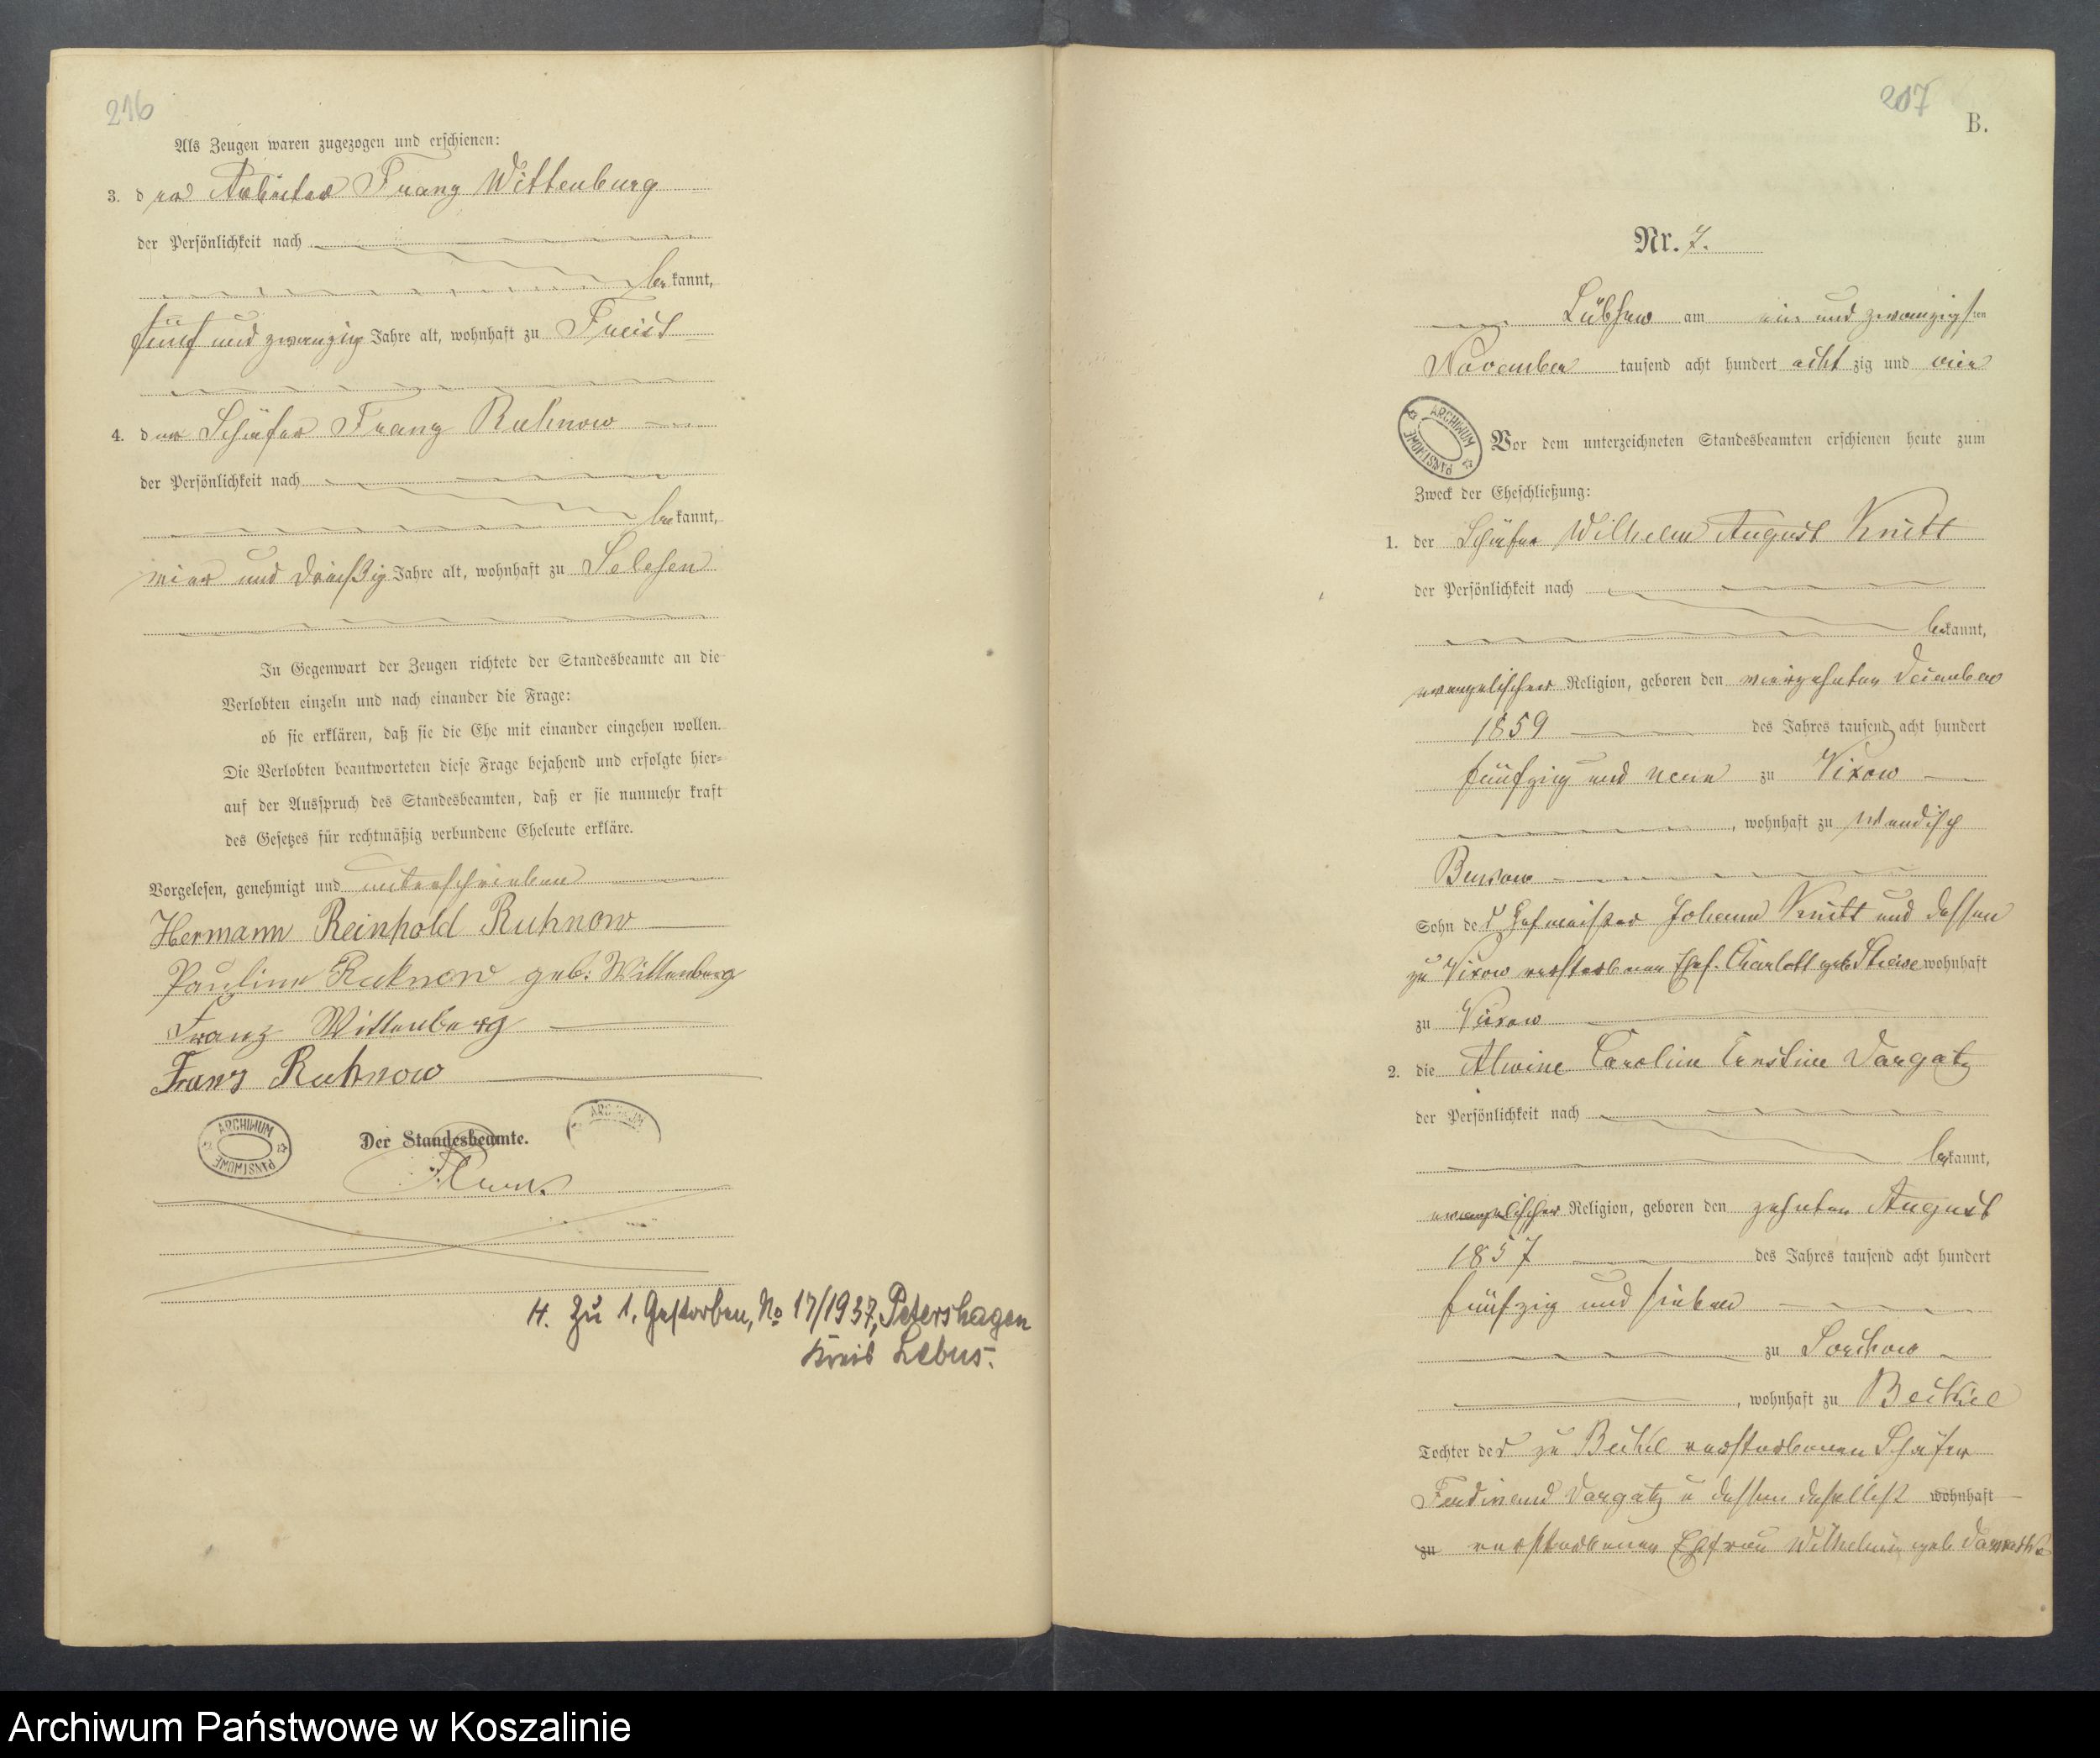 216
Als Zeugen waren zugezogen und erschienen:
3. der Arbeiter Franz Wittenburg
der Persönlichkeit nach
bekannt,
fünf und zwanzig Jahre alt, wohnhaft zu Freist
4. der Schäfer Franz Ruhnow
der Persönlichkeit nach
bekannt,
vier und dreißig Jahre alt, wohnhaft zu Selesen
In Gegenwart der Zeugen richtete der Standesbeamte an die
Verlobten einzeln und nach einander die Frage:
ob sie erklären, daß sie die Ehe mit einander eingehen wollen.
Die Verlobten beantworteten diese Frage bejahend und erfolgte hier-
auf der Ausspruch des Standesbeamten, daß er sie nunmehr kraft
des Gesetzes für rechtmäßig verbundene Eheleute erkläre.
Vorgelesen, genehmigt und unterschrieben
Hermann Reinhold Ruhnow
Pauline Ruhnow geb: Wittenberg
Franz Wittenberg
Franz Ruhnow
ARCHIWUM PAŃSTWOWE
ARCHIWUM
Der Standesbeamte.
H. Zu 1. Gestorben, No 17/1937, Petershagen
Kreis Lebus.
207
B.
Nr. 7.
Lübsow am ein und zwanzigsten
November tausend acht hundert achtzig und vier
ARCHIWUM PAŃSTWOWE
Vor dem unterzeichneten Standesbeamten erschienen heute zum
Zweck der Eheschließung:
1. der Schäfer Wilhelm August Knitt
der Persönlichkeit nach
bekannt,
evangelischer Religion, geboren den vierzehnten Dezember
1859 des Jahres tausend acht hundert
fünfzig und neun zu Vixow
, wohnhaft zu Wendisch
Buckow
Sohn des Hofmeister Johann Knitt und dessen
zu Vixow verstorbenen Ehef. Charlott geb wohnhaft
zu Vixow
2. die Alwine Caroline Ernstine Dargatz
der Persönlichkeit nach
bekannt,
evangelischer Religion, geboren den zehnten August
1857 des Jahres tausend acht hundert
fünfzig und sieben
zu Sorchow
, wohnhaft zu Beckel
Tochter des zu Beckel verstorbenen Schäfer
Ferdinand Dargatz u dessen daselbst wohnhaft
zu verstorbenen Ehefrau Wilhelmine geb
Archiwum Państwowe w Koszalinie